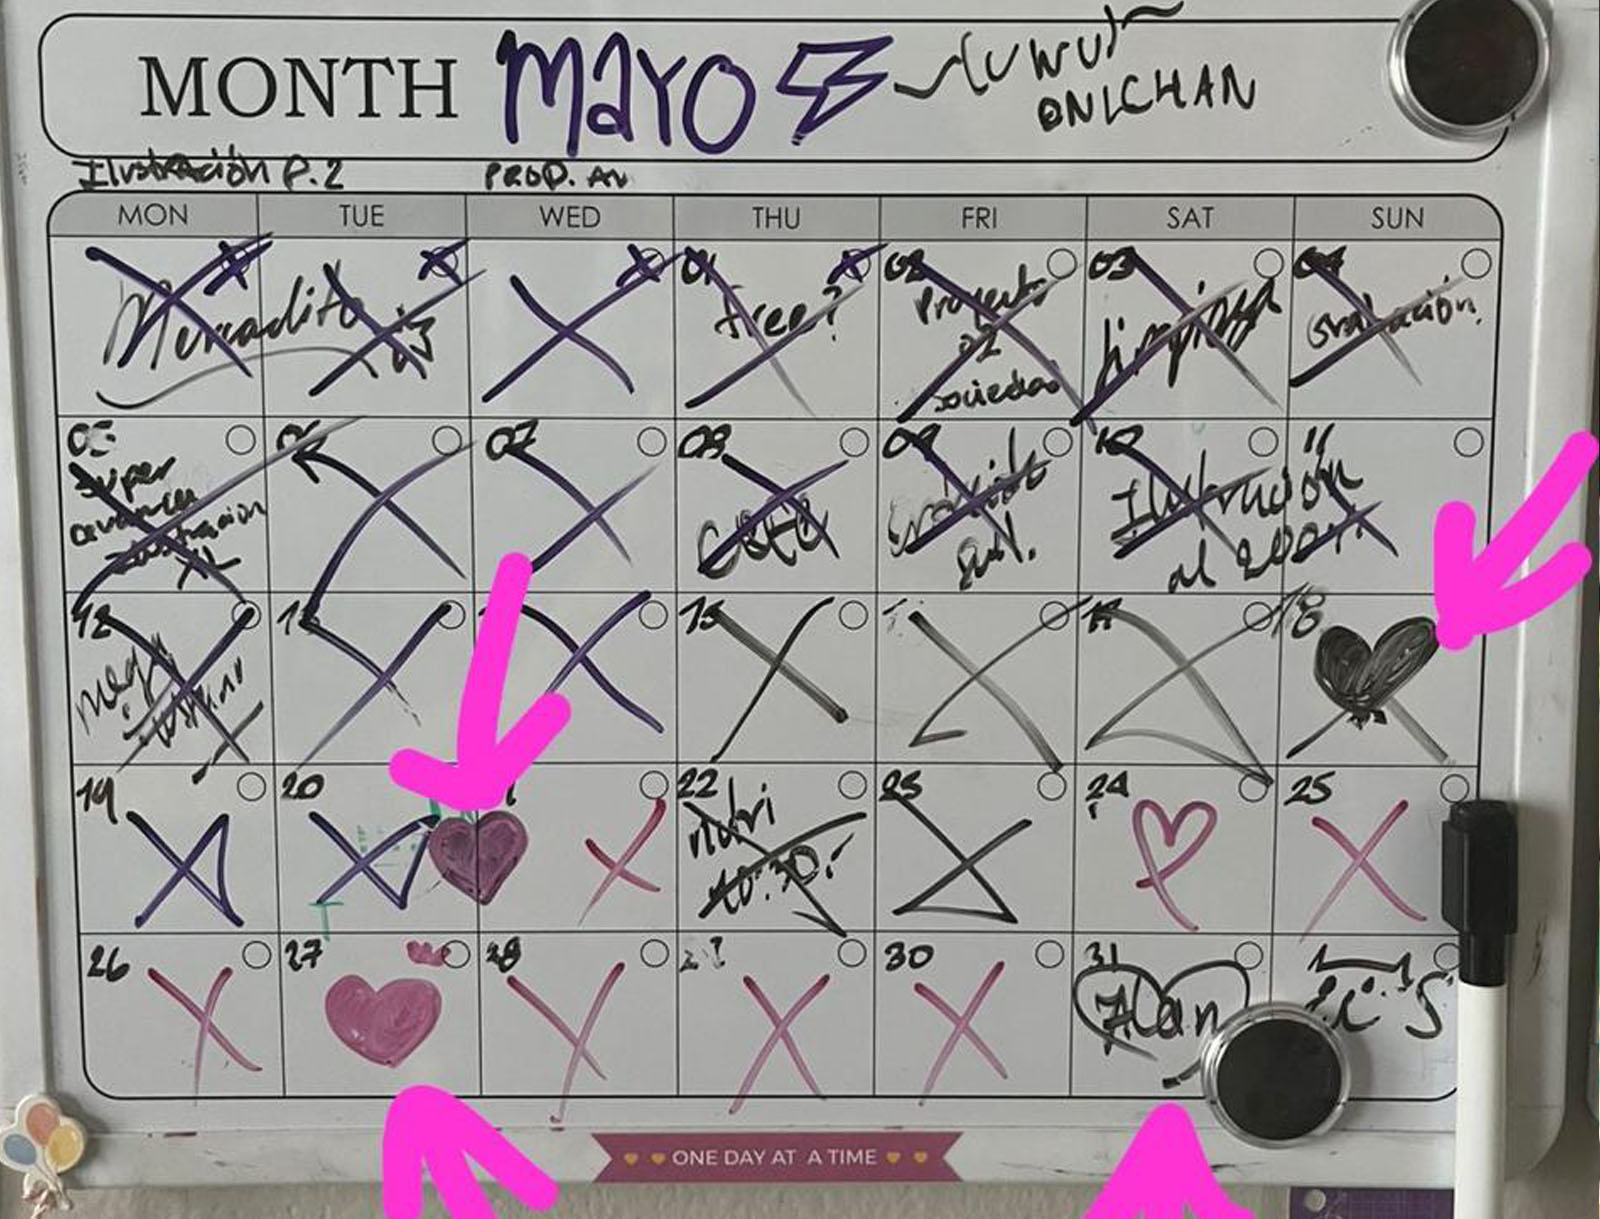 MONTH MAYO ~(UWU)~
ONICHAN
Ilustración P.2 PROD. AV
MON TUE WED THU FRI SAT SUN
Mercadito
01 Free?
02 Proyecto
02
sociedad
03 limpieza
04 Grabación.
05 Super
avances
ilustración
XL
06
07
08
09
10 Ilustración
al 200%
11
12 Mega
15
18
19
20
22 Nutri
10:30
23
24
25
26
27
28
30
31 Alan
ONE DAY AT A TIME